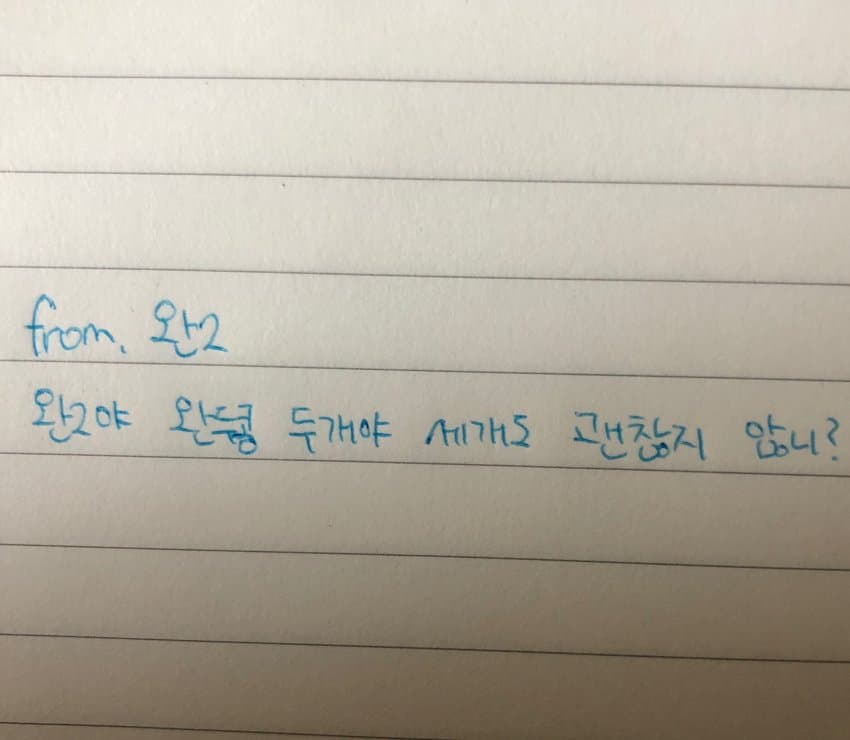 from. 완2
완2야 완쿵 두개야 세개도 괜찮지 않니?